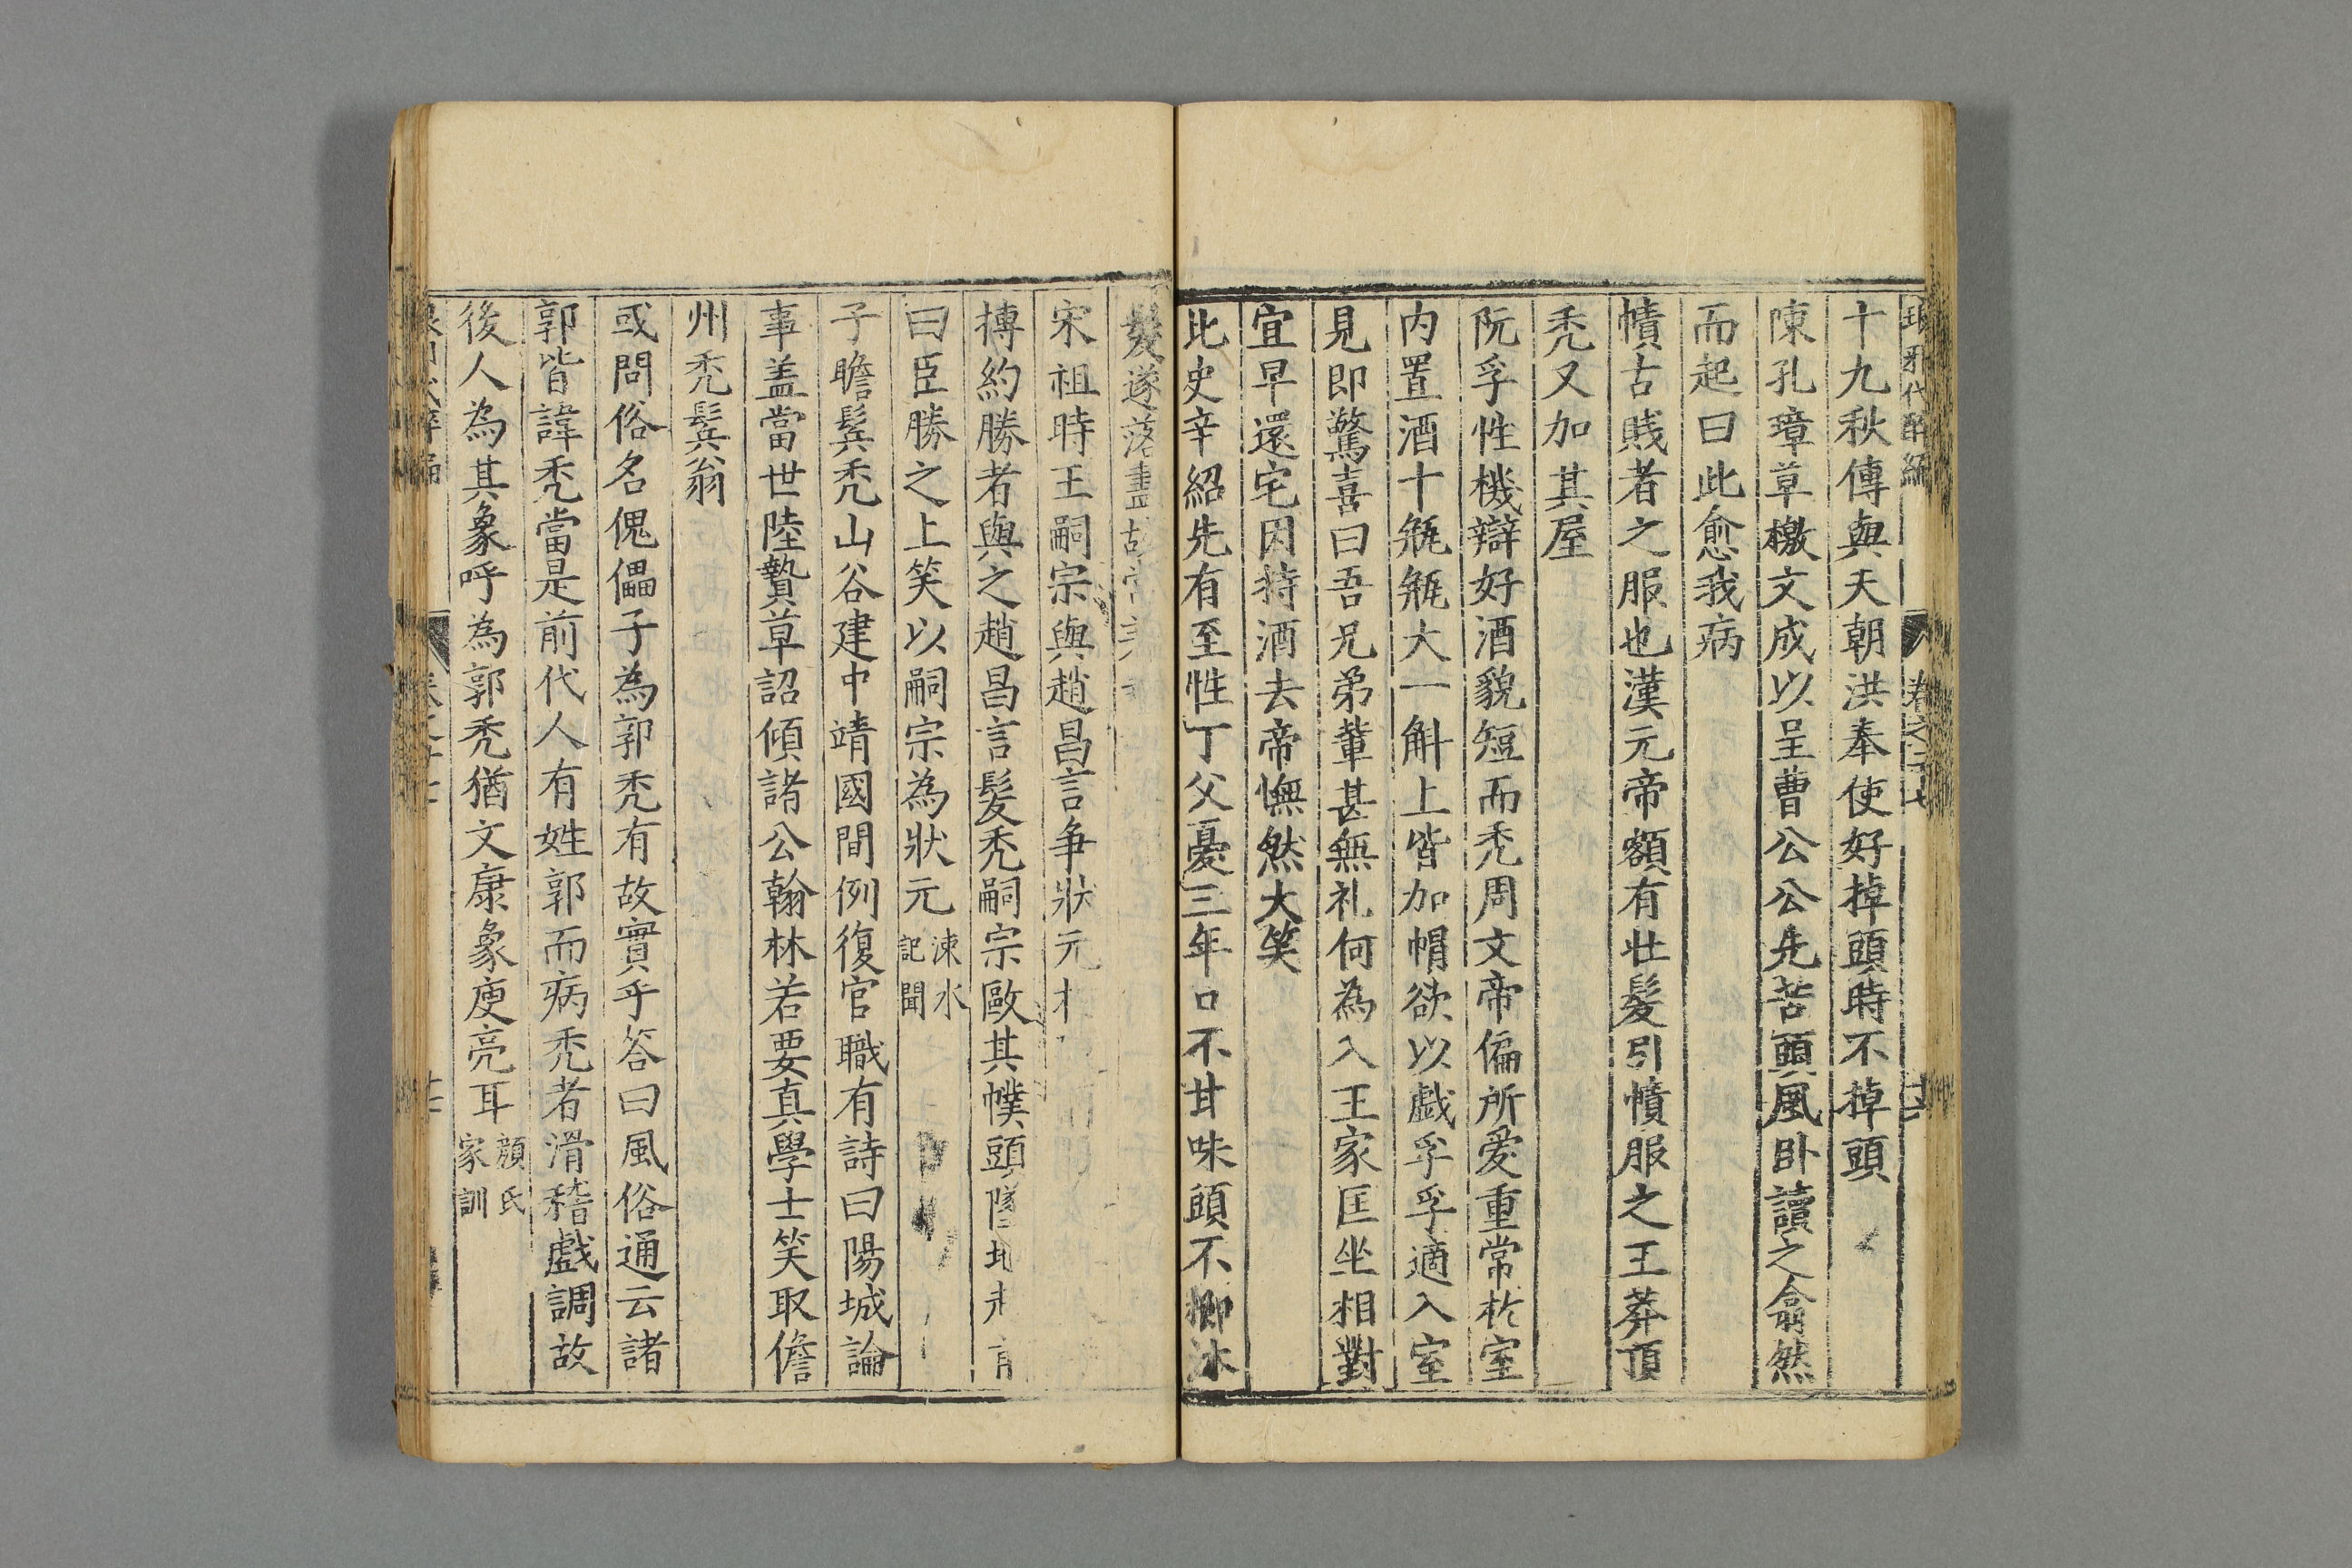 琅邪代醉編 卷之二十七
十九秋傳與天朝洪奉使好掉頭時不掉頭
陳孔璋草檄文成以呈曹公公先苦頭風卧讀之翕然
而起曰此愈我病
幘古賤者之服也漢元帝額有壯髮引幘服之王莽頂
禿又加其屋
阮孚性機辯好酒貌短而禿周文帝偏所愛重常於室
内置酒十瓶瓶大一斛上皆加帽欲以戲孚孚適入室
見即驚喜曰吾兄弟輩甚無礼何為入王家匡坐相對
宜早還宅因持酒去帝憮然大笑
比史辛紹先有至性丁父憂三年口不甘味頭不櫛沐
髮遂落盡故常
宋祖時王嗣宗與趙昌言争狀元
搏約勝者與之趙昌言髮禿嗣宗歐其幞頭墜地
曰臣勝之上笑以嗣宗為狀元 涑水記聞
子瞻鬓禿山谷建中靖國間例復官職有詩曰陽城論
事盖當世陸贄草詔傾諸公翰林若要真學士笑取儋
州禿鬓翁
或問俗名傀儡子為郭禿有故實乎答曰風俗通云諸
郭皆諱禿當是前代人有姓郭而病禿者滑稽戲調故
後人為其象呼為郭禿猶文康象庾亮耳 顔氏家訓